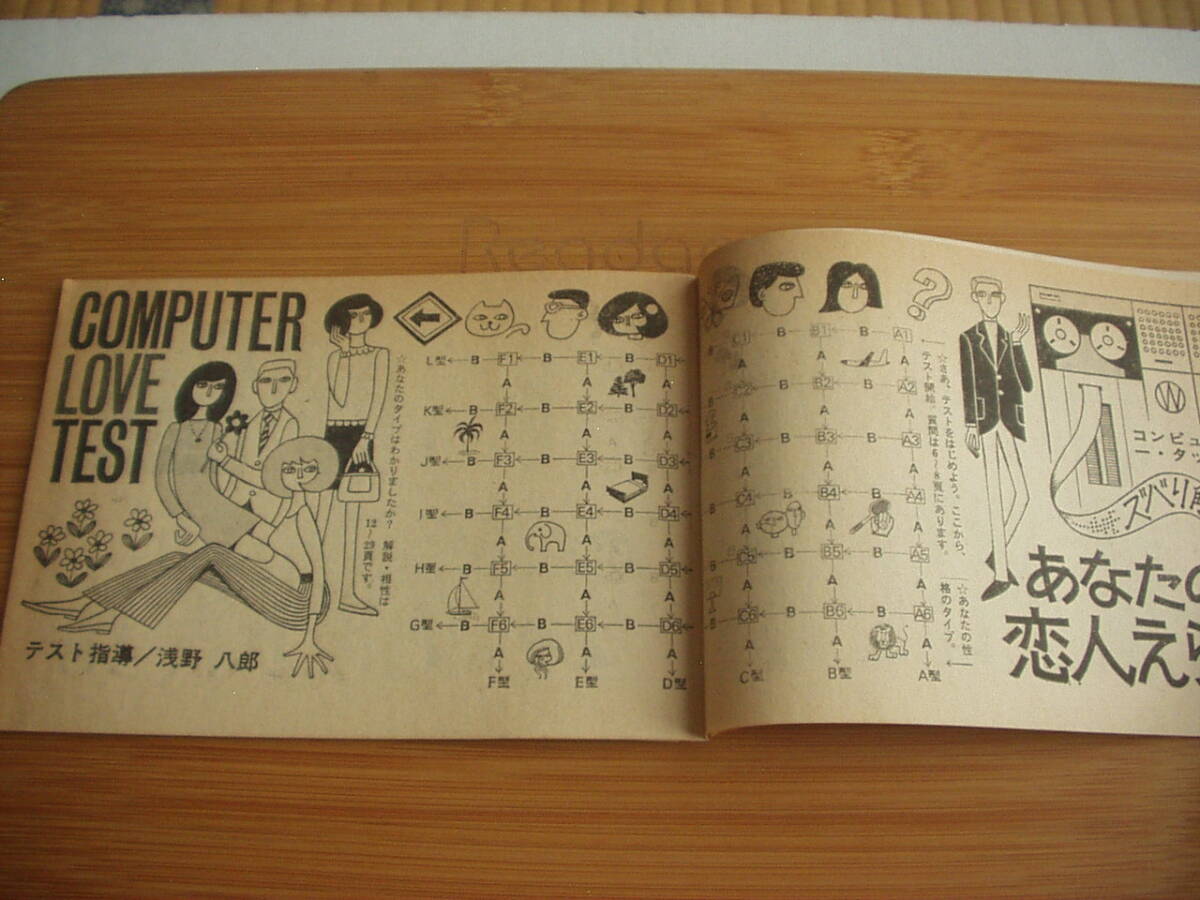 Readga
COMPUTER
LOVE
TEST
テスト指導/浅野 八郎
☆あなたのタイプはわかりましたか? 解説・相性は
12〜29頁です。
L型 B F1 B E1 B D1
A A A
K型 B F2 B E2 B D2
A A A
J型 B F3 B E3 B D3
A A A
I型 B F4 B E4 B D4
A A A
H型 B F5 B E5 B D5
A A A
G型 B F6 B E6 B D6
A A A
F型 E型 D型
C1 B B1 B A1
A A A
C2 B B2 B A2
A A A
C3 B B3 B A3
A A A
C4 B B4 B A4
A A A
C5 B B5 B A5
A A A
C6 B B6 B A6
A A A
C型 B型 A型
☆さあ、テストをはじめよう。ここから、
テスト開始。質問は6〜8頁にあります。
☆あなたの性
格のタイプ。
W
コンピュ
ー・タッ
ズバリ
あなたの
恋人えら